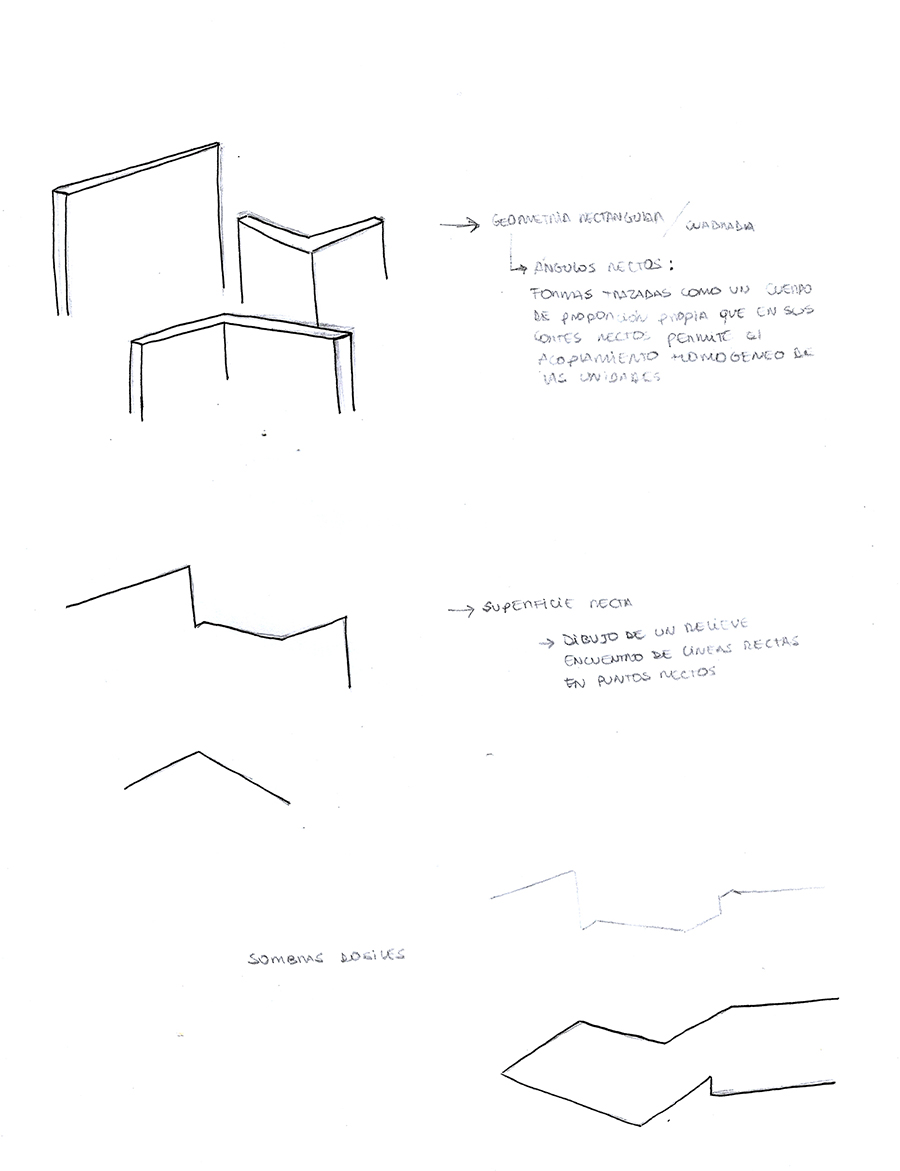 → GEOMETRÍA RECTANGULAR / CUADRADA
→ ÁNGULOS RECTOS:
FORMAS TRAZADAS COMO UN CUERPO
DE PROPORCIÓN PROPIA QUE EN SUS
CORTES RECTOS PERMITE EL
ACOPLAMIENTO HOMOGENEO DE
LAS UNIDADES
→ SUPERFICIE RECTA
→ DIBUJO DE UN RELIEVE
ENCUENTRO DE LÍNEAS RECTAS
EN PUNTOS RECTOS
SOMBRAS DOCILES